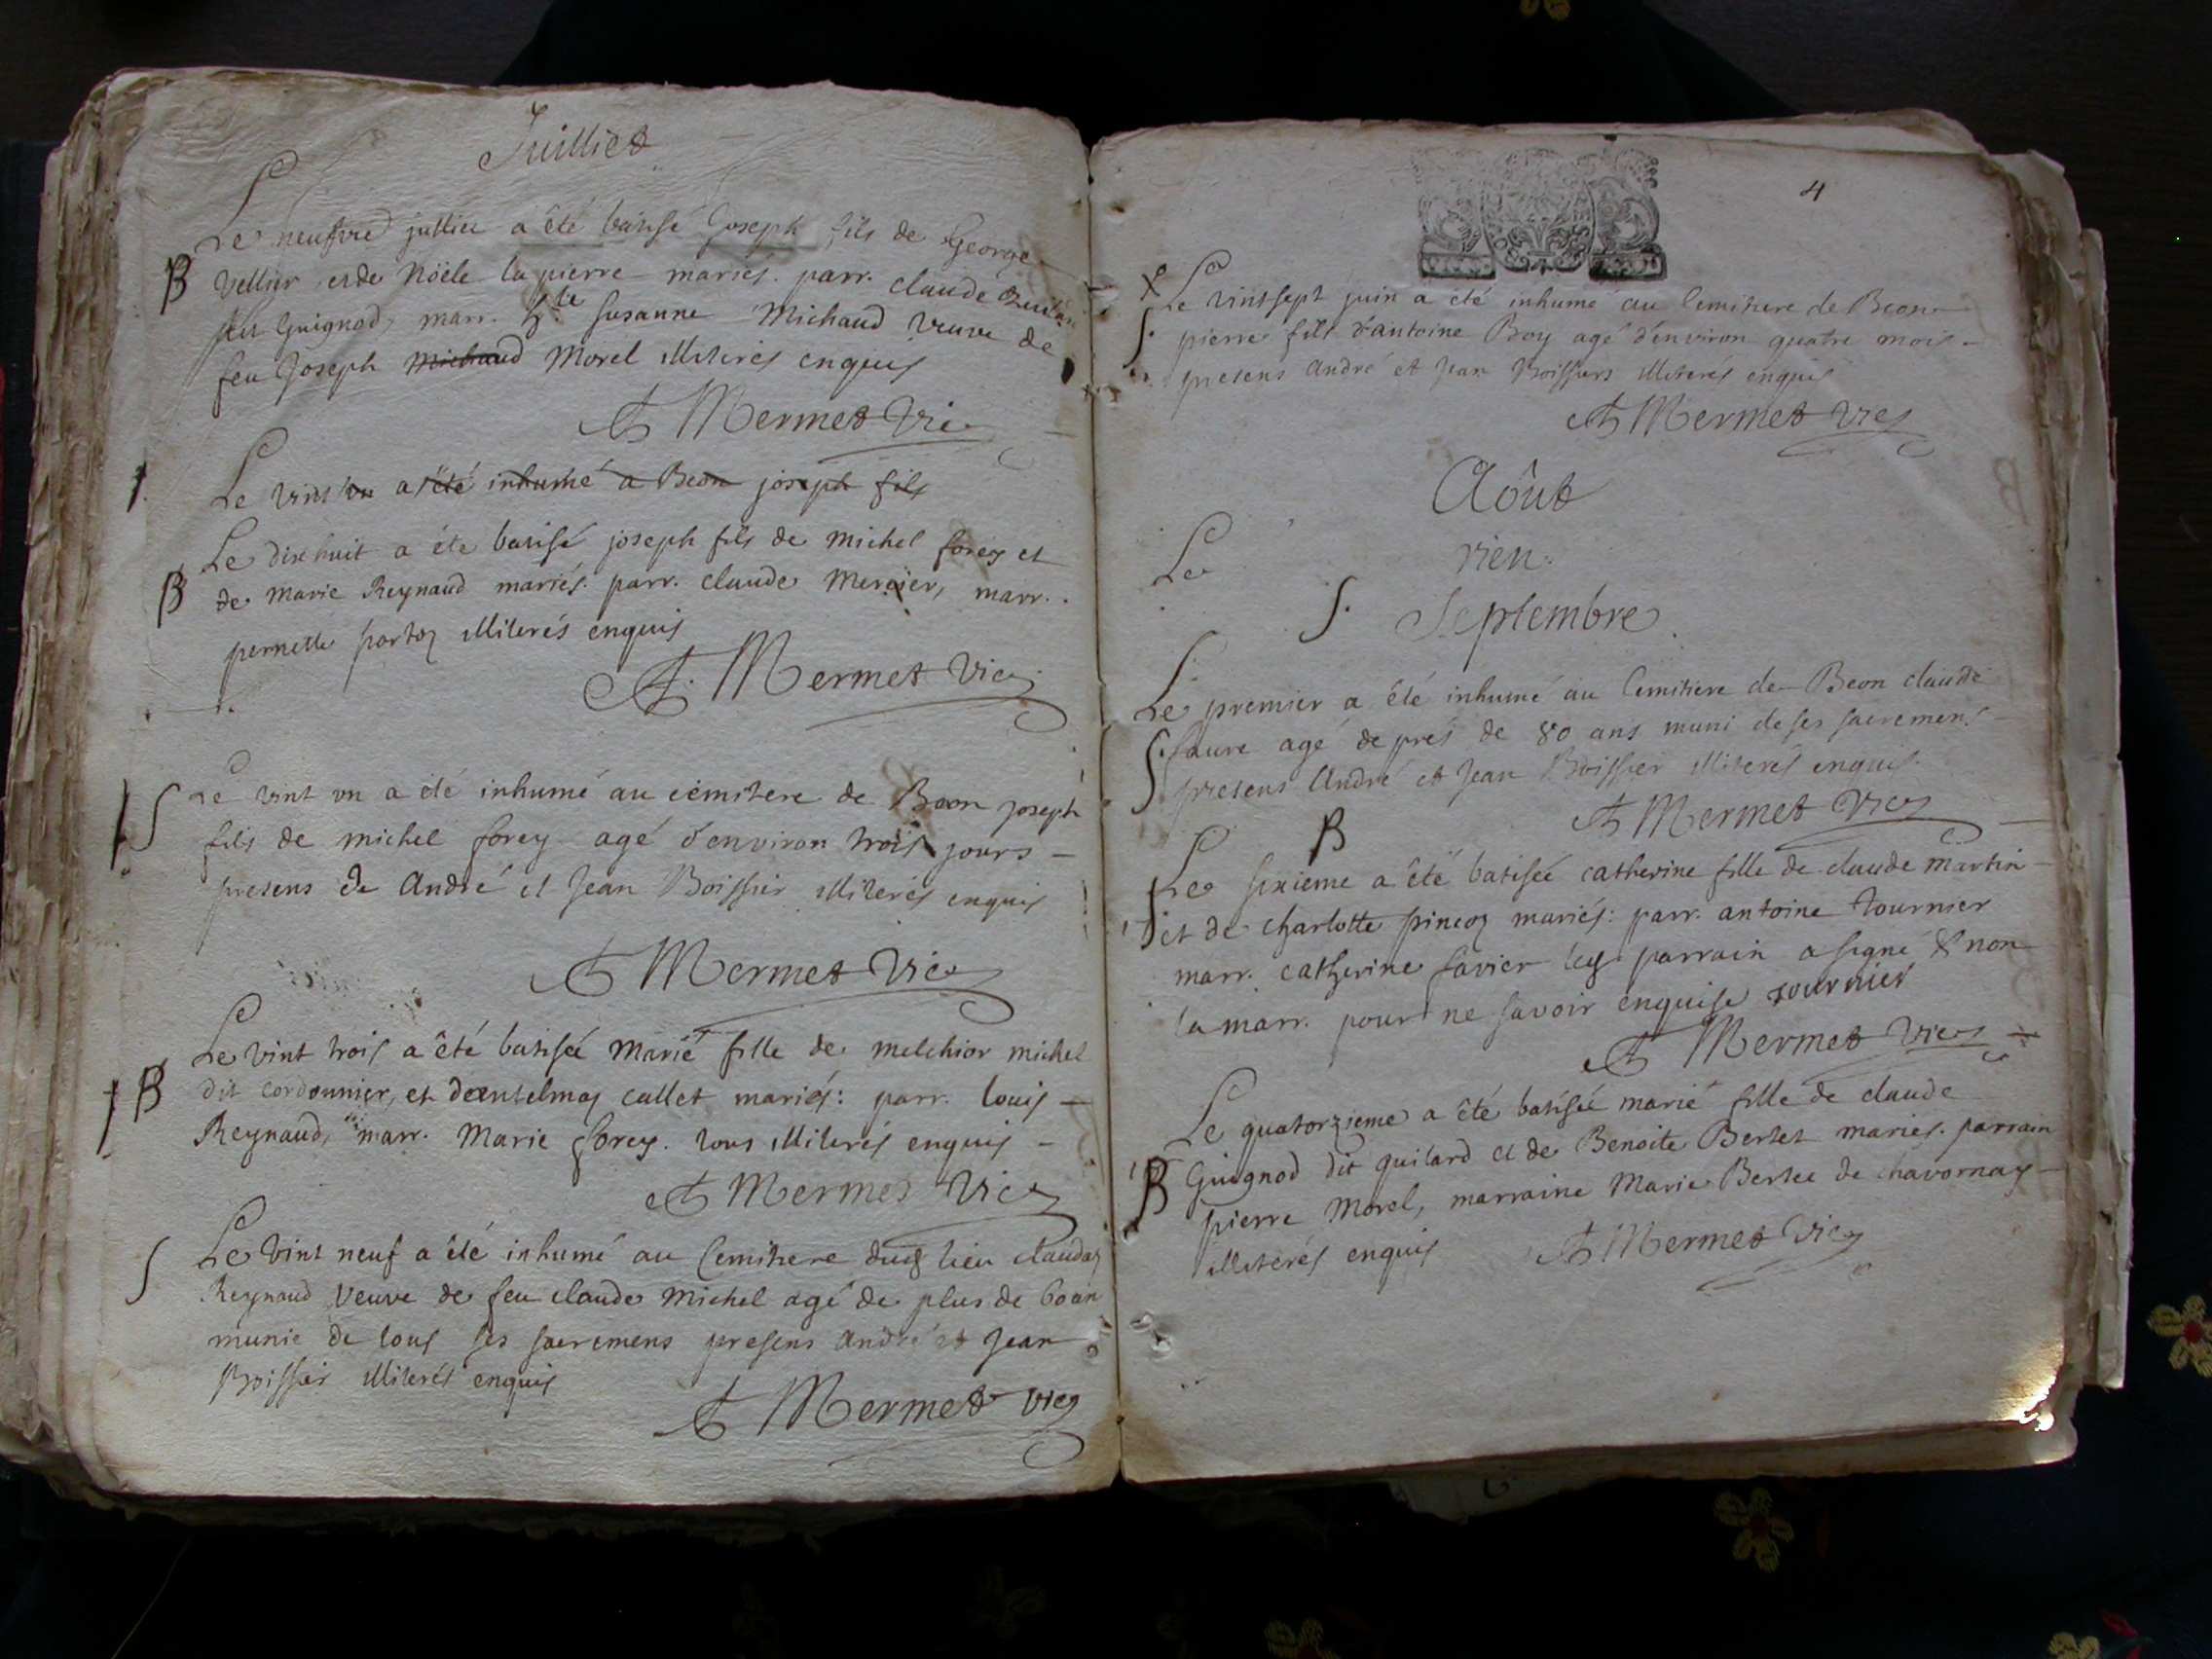 Juillied
Le neufvie juillie a été batisé Joseph fils de George
B Vellier et de Nöele la pierre mariés. parr. claude
feu Guignod, marr. h.te Susanne Michaud veuve de
feu Joseph Michaud Morel illiterés enquis
A Mermet Vic.
Le vint un a été inhumé a Beon joseph fils
Le dixhuit a éte batisé joseph fils de michel forey et
B de Marie Reynaud mariés. parr. claude Mercier, marr.
pernette illiterés enquis
A. Mermet Vic
S Le vint un a été inhumé au cemitere de Beon joseph
fils de michel forey agé d'environ trois jours
presens de André et Jean Boissier illiterés enquis
A Mermet Vic
Le vint trois a êté batiséé Marie fille de melchior michel
B dit cordonnier, et dantelmaz callet mariés: parr. louis
Reynaud, marr. Marie forey. tous illiterés enquis
A Mermet Vic
S Le vint neuf a êté inhumé au Cemitiere dud lieu claudaz
Reynaud Veuve de feu claude Michel agé de plus de 60 an
munie de tous ses sacremens presens andré et Jean
Boissier illiterés enquis
A Mermet Vic
4
Le vintsept juin a été inhumé au Cemitiere de Beon
S. pierre fils d'antoine Boy agé d'environ quatre mois
presens André et Jean Boissiers illiterés enquis
A Mermet Vic
Aôut
Le
rien.
S. Septembre
Le premier a été inhumé au Cemitiere de Beon claude
S. faure agé de prés de 80 ans muni de ses sacremens
presens André et Jean Boissier illiterés enquis.
A Mermet Vic
B
Le sixieme a êté batisée catherine fille de claude martin
et de charlotte pincoz mariés: parr. antoine tournier
marr. catherine favier parrain a signé & non
la marr. pour ne savoir enquise tournier
A Mermet Vic
Le quatorzieme a êté batisée marie fille de claude
B Guignod dit quilard et de Benoite Bertet mariés. parrain
pierre Morel, marraine Marie Bertet de chavornay
illiterés enquis A Mermet Vic